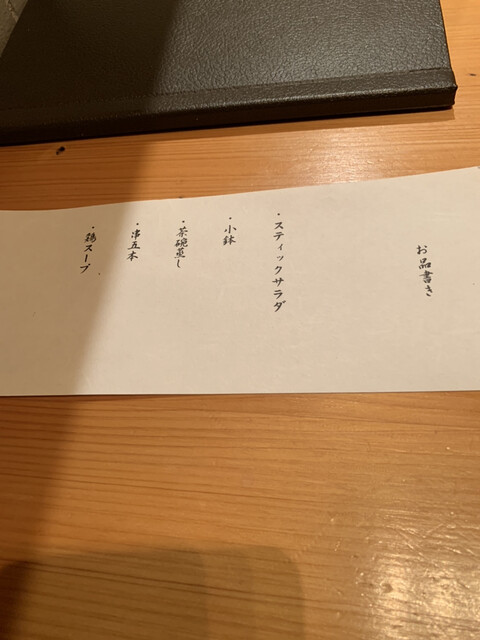 お品書き
・スティックサラダ
・小鉢
・茶碗蒸し
・串五本
・鶏スープ